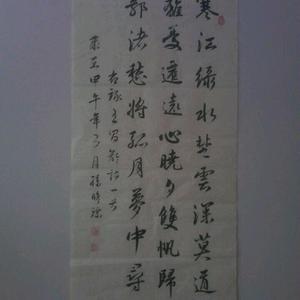 寒江綠水楚雲深莫道
離憂遷遠心曉夕雙帆歸
鄂渚愁將孤月夢中尋
右錄王昌齡詩一首
甲午年 月